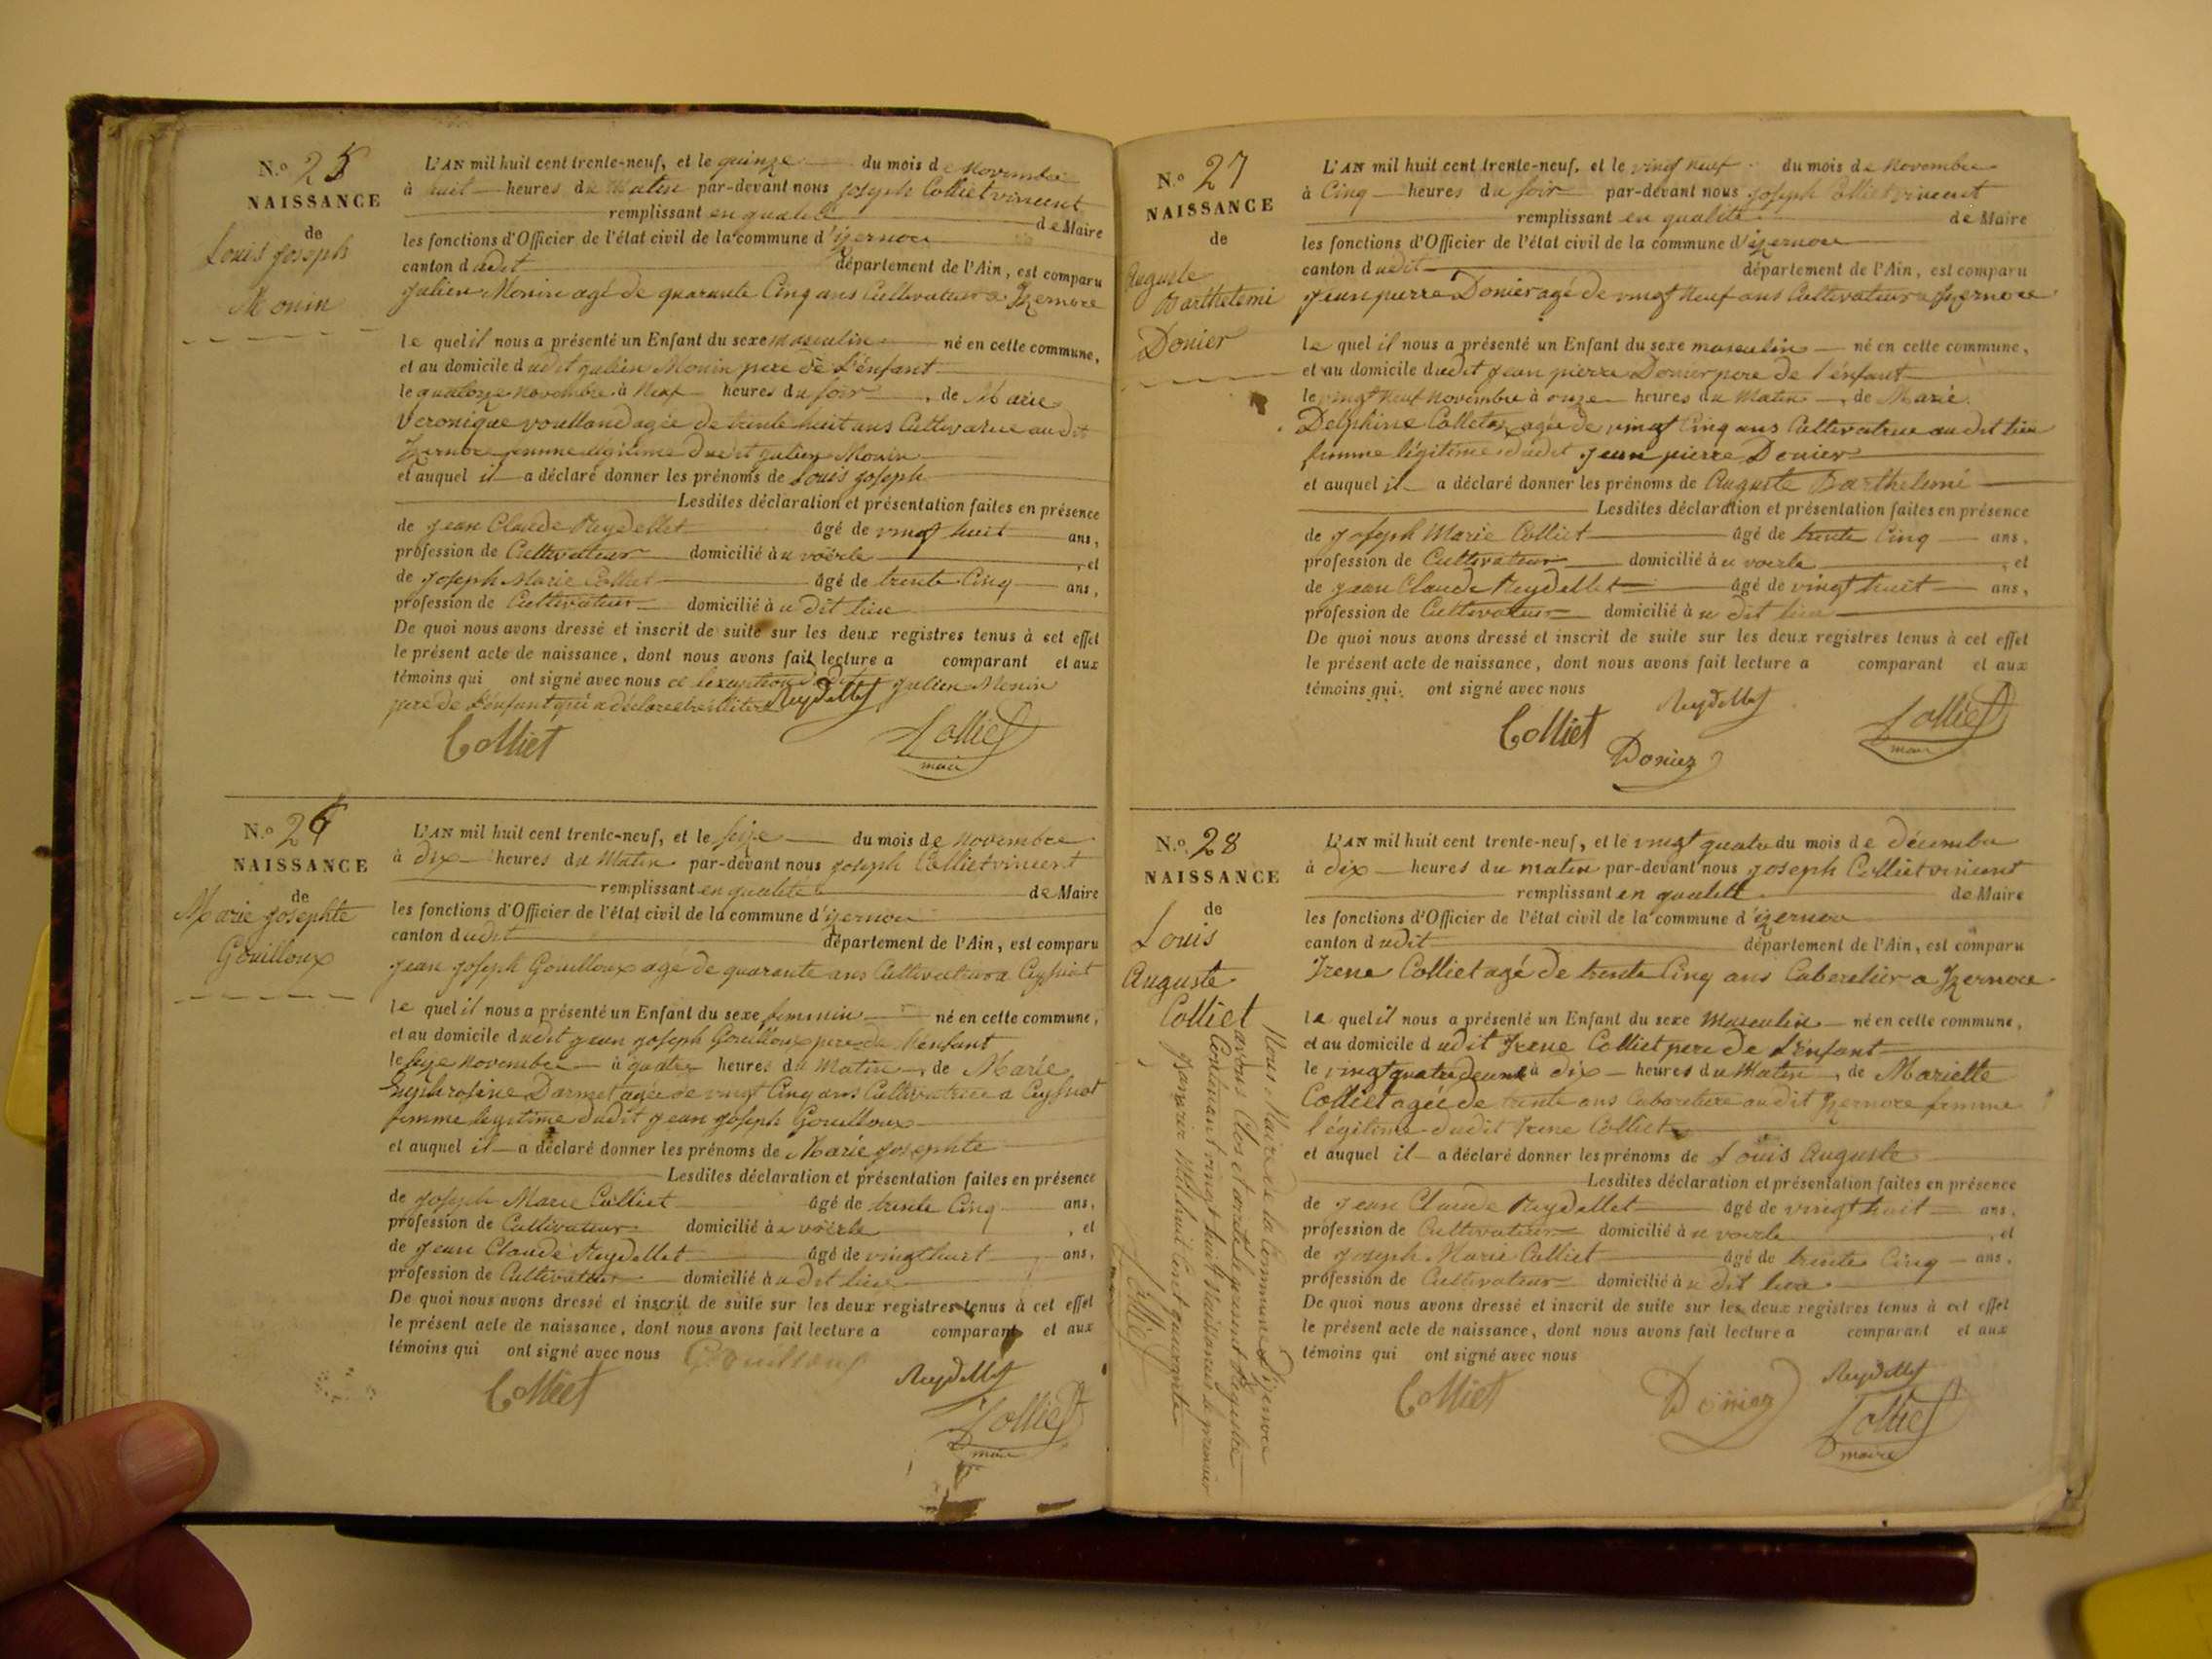 N.o 25
NAISSANCE
de
Louis Joseph
Monin
L'AN mil huit cent trente-neuf, et le quinze du mois de Novembre
à huit heures du Matin par-devant nous Joseph Colliet vincent
remplissant en qualité de Maire
les fonctions d'Officier de l'état civil de la commune d'izernore
canton dudit département de l'Ain, est comparu
Julien Monin agé de quarante Cinq ans Cultivateur a Izernore
le quel il nous a présenté un Enfant du sexe masculin né en cette commune,
et au domicile dudit Julien Monin pere de l'énfant
le quatorze Novembre à Neuf heures du soir, de Marie
Veronique voulland agée de trente huit ans Cultivatrice audit
Izernore femme légitime dudit Julien Monin
et auquel il a déclaré donner les prénoms de Louis Joseph
Lesdites déclaration et présentation faites en présence
de Jean Claude Reydellet âgé de vingt huit ans,
profession de Cultivateur domicilié à u voërle, et
de Joseph Marie Colliet âgé de trente Cinq ans,
profession de Cultivateur domicilié à u dit lieu
De quoi nous avons dressé et inscrit de suite sur les deux registres tenus à cet effet
le présent acte de naissance, dont nous avons fait lecture a comparant et aux
témoins qui ont signé avec nous a lexception dudit Julien Monin
pere de l'énfant qui a déclaré etre illitéré Reydellet
Colliet Colliet
maire
N.o 26
NAISSANCE
de
Marie Josephte
Gouilloux
L'AN mil huit cent trente-neuf, et le seize du mois de Novembre
à dix heures du Matin par-devant nous Joseph Colliet vincent
remplissant en qualité de Maire
les fonctions d'Officier de l'état civil de la commune d'izernore
canton dudit département de l'Ain, est comparu
Jean Joseph Gouilloux agé de quarante ans Cultivateur a Ceyssiat
le quel il nous a présenté un Enfant du sexe feminin né en cette commune,
et au domicile dudit Jean Joseph Gouilloux pere de l'énfant
le seize Novembre à quatre heures du Matin, de Marie
Euphrosine Darmet agée de vingt Cinq ans Cultivatrice a Ceyssiat
femme légitime dudit Jean Joseph Gouilloux
et auquel il a déclaré donner les prénoms de Marie Josephte
Lesdites déclaration et présentation faites en présence
de Joseph Marie Colliet âgé de trente Cinq ans,
profession de Cultivateur domicilié à u voërle, et
de Jean Claude Reydellet âgé de vingt huit ans,
profession de Cultivateur domicilié à u dit lieu
De quoi nous avons dressé et inscrit de suite sur les deux registres tenus à cet effet
le présent acte de naissance, dont nous avons fait lecture a comparant et aux
témoins qui ont signé avec nous Gouilloux
Colliet Reydellet
Colliet
maire
N.o 27
NAISSANCE
de
Auguste
Barthelemi
Donier
L'AN mil huit cent trente-neuf, et le vingt neuf du mois de Novembre
à Cinq heures du soir par-devant nous Joseph Colliet vincent
remplissant en qualité de Maire
les fonctions d'Officier de l'état civil de la commune d'izernore
canton dudit département de l'Ain, est comparu
Jean pierre Donier agé de vingt Neuf ans Cultivateur a Izernore
le quel il nous a présenté un Enfant du sexe masculin né en cette commune,
et au domicile dudit Jean pierre Donier pere de l'énfant
le vingt Neuf Novembre à onze heures du Matin, de Marie
Delphine Colletaz agée de vingt Cinq ans Cultivatrice au dit lieu
femme légitime dudit Jean pierre Donier
et auquel il a déclaré donner les prénoms de Auguste Barthelemi
Lesdites déclaration et présentation faites en présence
de Joseph Marie Colliet âgé de trente Cinq ans,
profession de Cultivateur domicilié à u voerle, et
de Jean Claude Reydellet âgé de vingt huit ans,
profession de Cultivateur domicilié à u dit lieu
De quoi nous avons dressé et inscrit de suite sur les deux registres tenus à cet effet
le présent acte de naissance, dont nous avons fait lecture a comparant et aux
témoins qui ont signé avec nous Reydellet
Colliet Donier Colliet
maire
N.o 28
NAISSANCE
de
Louis
Auguste
Colliet
L'AN mil huit cent trente-neuf, et le vingt quatre du mois de Décembre
à dix heures du matin par-devant nous Joseph Colliet vincent
remplissant en qualité de Maire
les fonctions d'Officier de l'état civil de la commune d'izernore
canton dudit département de l'Ain, est comparu
Irene Colliet agé de trente Cinq ans Cabaretier a Izernore
le quel il nous a présenté un Enfant du sexe Masculin né en cette commune,
et au domicile dudit Irene Colliet pere de l'énfant
le vingt quatre à dix heures du Matin, de Mariette
Colliet agée de trente ans Cabaretiere audit Izernore femme
légitime dudit Irene Colliet
et auquel il a déclaré donner les prénoms de Louis Auguste
Lesdites déclaration et présentation faites en présence
de Jean Claude Reydellet âgé de vingt huit ans,
profession de Cultivateur domicilié à u voerle, et
de Joseph Marie Colliet âgé de trente Cinq ans,
profession de Cultivateur domicilié à u dit lieu
De quoi nous avons dressé et inscrit de suite sur les deux registres tenus à cet effet
le présent acte de naissance, dont nous avons fait lecture a comparant et aux
témoins qui ont signé avec nous
Colliet Donier Reydellet
Colliet
maire
Nous Maire de la Commune D'izernore
avons Clos et arrêté le present Registre
Contenant vingt huit Naissances le premier
Janvier Mil huit Cent quarante
Colliet